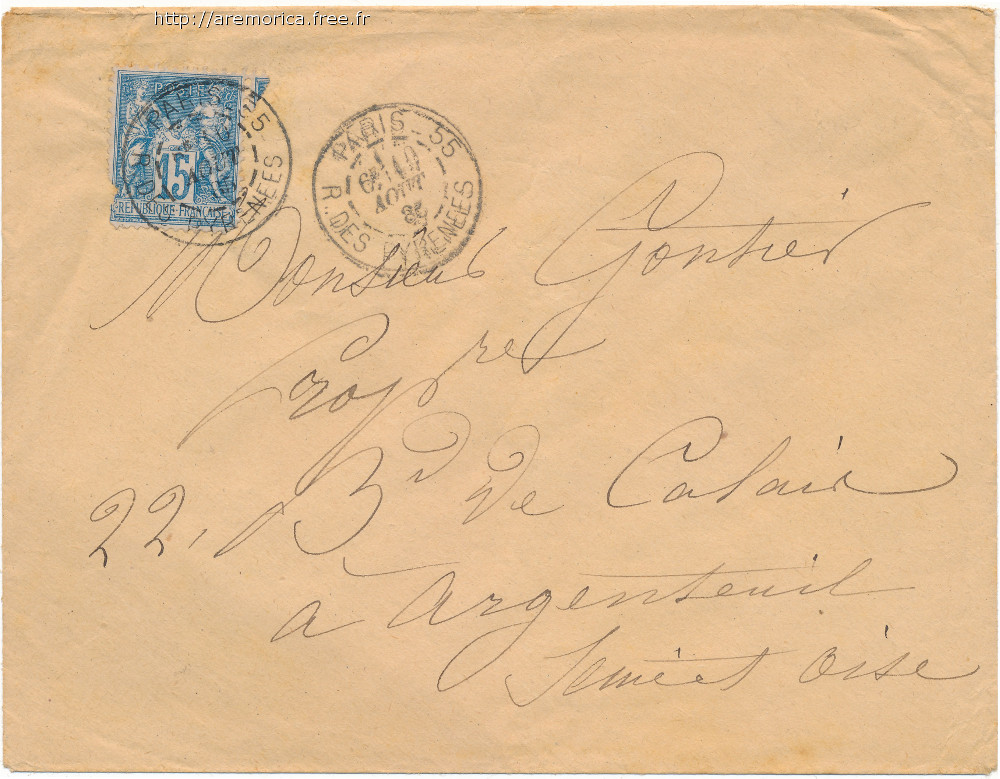 http://aremorica.free.fr
POSTES
15
REPUBLIQUE FRANÇAISE
PARIS 55
AOUT
R. DES PYRENEES
PARIS 55
AOUT
R. DES PYRENEES
Monsieur Gontier
Propre
22, Bd de Calais
à Argenteuil
Seine et Oise